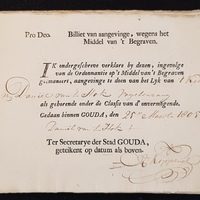 Pro Deo. Billiet van aangevinge, wegens het
Middel van 't Begraven.
IK ondergeschreve verklare by deezen, ingevolge
van de Ordonnantie op 't Middel van 't Begraven
geëmaneert, aangevinge te doen van het Lyk van
Daniel van
als gehorende onder de Classe van d'onvermögende.
Gedaan binnen GOUDA, den 25 Maart 1805
Daniel van
Ter Secretarye der Stad GOUDA,
geteikent op datum als boven.